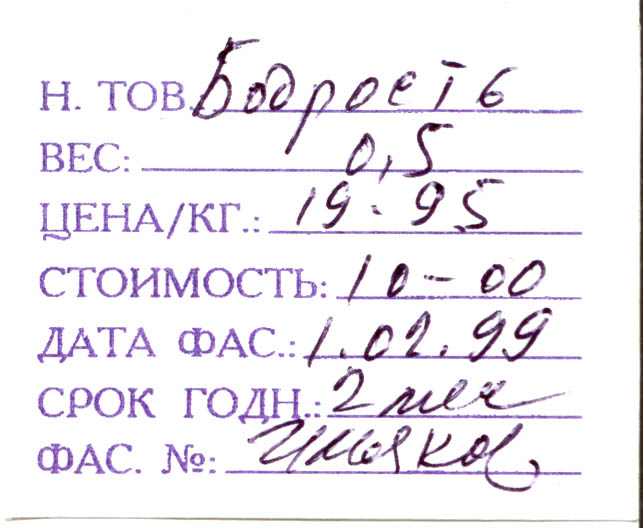 Н. ТОВ. Бодрость
ВЕС: 0,5
ЦЕНА/КГ.: 19-95
СТОИМОСТЬ: 10-00
ДАТА ФАС.: 1.02.99
СРОК ГОДН.: 2 мес
ФАС. №: